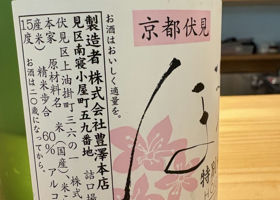 京都伏見
特別
お酒はおいしく適量を。
製造者 株式会社豊澤本店
見区南寝小屋町五九番地
伏見区上油掛町三六の一 株式
本家 原材料名 米(国産)、米こ
産米) 精米歩合 60% アルコ
15度
お酒は二〇歳になってから。